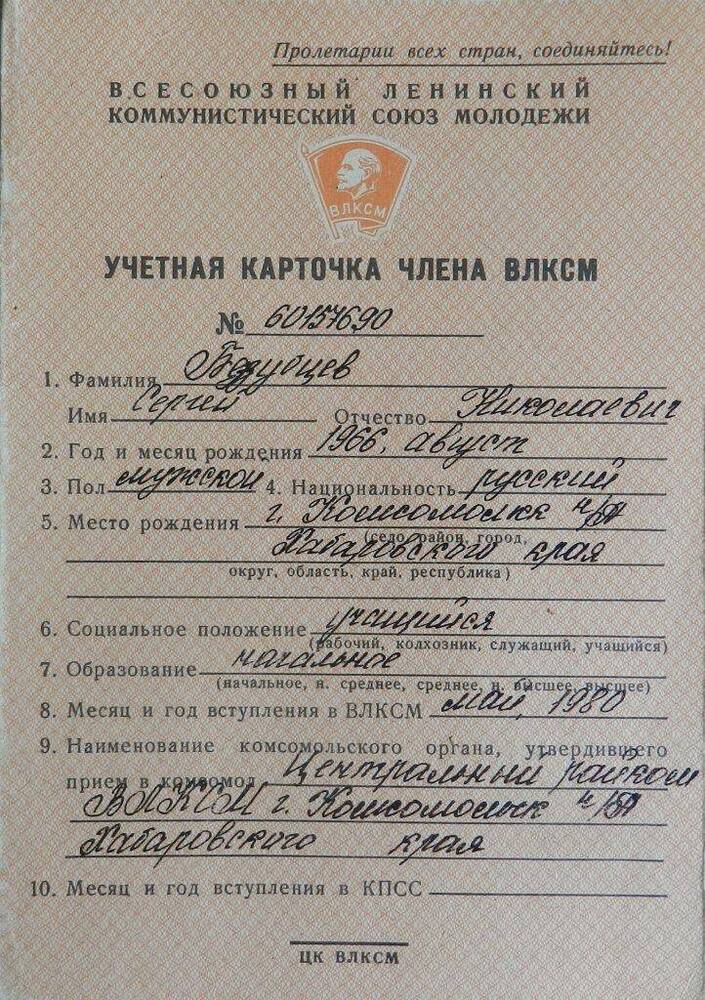 Пролетарии всех стран, соединяйтесь!
ВСЕСОЮЗНЫЙ ЛЕНИНСКИЙ
КОММУНИСТИЧЕСКИЙ СОЮЗ МОЛОДЕЖИ
ВЛКСМ
УЧЕТНАЯ КАРТОЧКА ЧЛЕНА ВЛКСМ
№ 60157690
1. Фамилия
Имя Сергей Отчество Николаевич
2. Год и месяц рождения 1966, август
3. Пол мужской 4. Национальность русский
5. Место рождения г. Комсомольск н/А
(село, район, город,
Хабаровского края
округ, область, край, республика)
6. Социальное положение учащийся
(рабочий, колхозник, служащий, учащийся)
7. Образование начальное
(начальное, н. среднее, среднее, н. высшее, высшее)
8. Месяц и год вступления в ВЛКСМ май, 1980
9. Наименование комсомольского органа, утвердившего
прием в комсомол Центральный райком
ВЛКСМ г. Комсомольск н/А
Хабаровского края
10. Месяц и год вступления в КПСС
ЦК ВЛКСМ